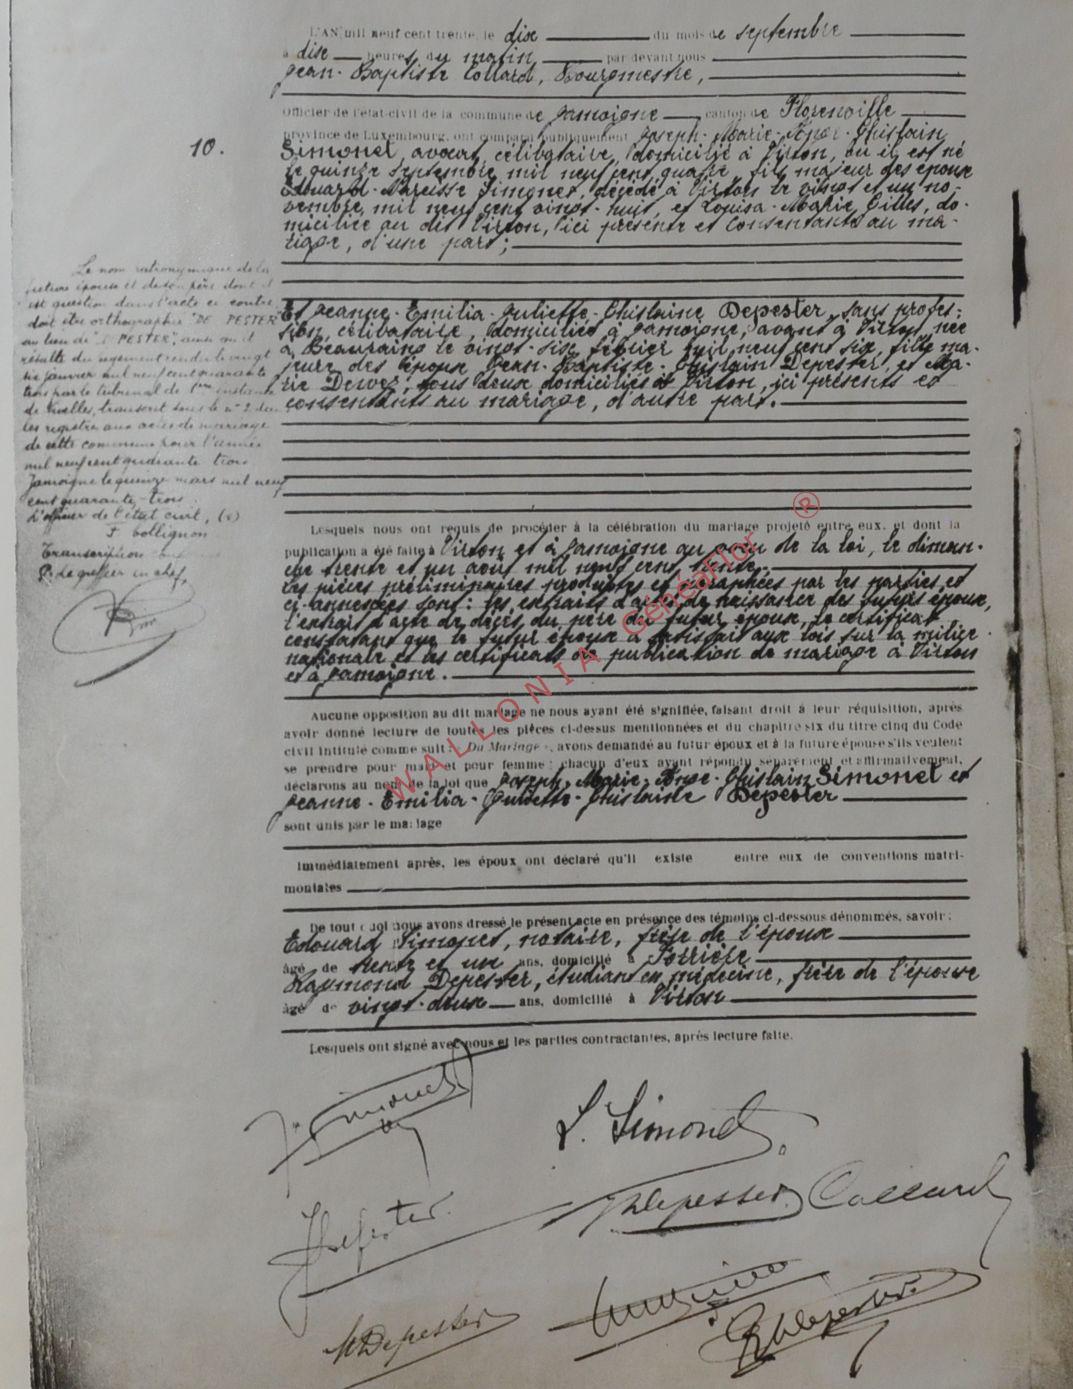 L'AN mil neuf cent trente, le dix du mois de septembre
à dix heures du matin par devant nous
Jean-Baptiste Collard, Bourgmestre,
Officier de l'état-civil de la commune de Jamoigne canton de Florenville
province de Luxembourg, ont comparu publiquement Joseph-Marie-Ghislain
10.
Simonet, avocat, célibataire, domicilié à Virton, où il est né
le quinze septembre mil neuf cent quatre, fils majeur des époux
Edouard-Narcisse Simonet, décédé à Virton le vingt et un no-
vembre mil neuf cent vingt-huit, et Louisa-Marie Gilles, do-
miciliée au dit Virton, ici présente et consentante au ma-
riage, d'une part;
Le nom patronymique de la
future épouse et de son père dont il
est question dans l'acte ci contre
doit être orthographié "DE PESTER"
au lieu de "DEPESTER", ainsi qu'il
résulte du jugement rendu le vingt
janvier mil neuf cent quarante
trois par le tribunal de 1ère instance
de Nivelles, transcrit sous le n° 2 dans
les registres aux actes de mariage
de cette commune pour l'année
mil neuf cent quarante trois
Jamoigne le quinze mars mil neuf
cent quarante-trois
L'officier de l'état civil, (s)
F. Collignon
Transcription
P. le greffier en chef,
Et Jeanne-Emilia-Juliette-Ghislaine Depester, sans profes-
sion, célibataire, domiciliée à Jamoigne, avant à Virton, née
à Beauraing le vingt-six février mil neuf cent six, fille ma-
jeure des époux Jean-Baptiste-Ghislain Depester, et Ma-
rie Dervez, tous deux domiciliés à Virton, ici présents et
consentants au mariage, d'autre part.
Lesquels nous ont requis de procéder à la célébration du mariage projeté entre eux, et dont la
publication a été faite à Virton et à Jamoigne au vœu de la loi, le diman-
che trente et un août mil neuf cent trente.
Les pièces préliminaires produites et paraphées par les parties et
ci-annexées sont: les extraits d'acte de naissance des futurs époux,
l'extrait d'acte de décès du père du futur époux, le certificat
constatant que le futur époux a satisfait aux lois sur la milice
nationale et les certificats de publication de mariage à Virton
et à Jamoigne.
Aucune opposition au dit mariage ne nous ayant été signifiée, faisant droit à leur réquisition, après
avoir donné lecture de toutes les pièces ci-dessus mentionnées et du chapitre six du titre cinq du Code
civil intitulé comme suit: « Du Mariage », avons demandé au futur époux et à la future épouse s'ils veulent
se prendre pour mari et pour femme; chacun d'eux ayant répondu séparément et affirmativement,
déclarons au nom de la loi que Joseph-Marie-Ghislain Simonet et
Jeanne-Emilia-Juliette-Ghislaine Depester
sont unis par le mariage
Immédiatement après, les époux ont déclaré qu'il existe entre eux de conventions matri-
moniales
De tout quoi nous avons dressé le présent acte en présence des témoins ci-dessous dénommés, savoir:
Edouard Simonet, notaire, frère de l'époux
âgé de trente et un ans, domicilié à
Raymond Depester, étudiant en médecine, frère de l'épouse
âgé de vingt-deux ans, domicilié à Virton
Lesquels ont signé avec nous et les parties contractantes, après lecture faite.
J. Simonet
L. Simonet
J. Depester
Depester Collard
M Depester
R Depester
WALLONIA GénéaFlor ®